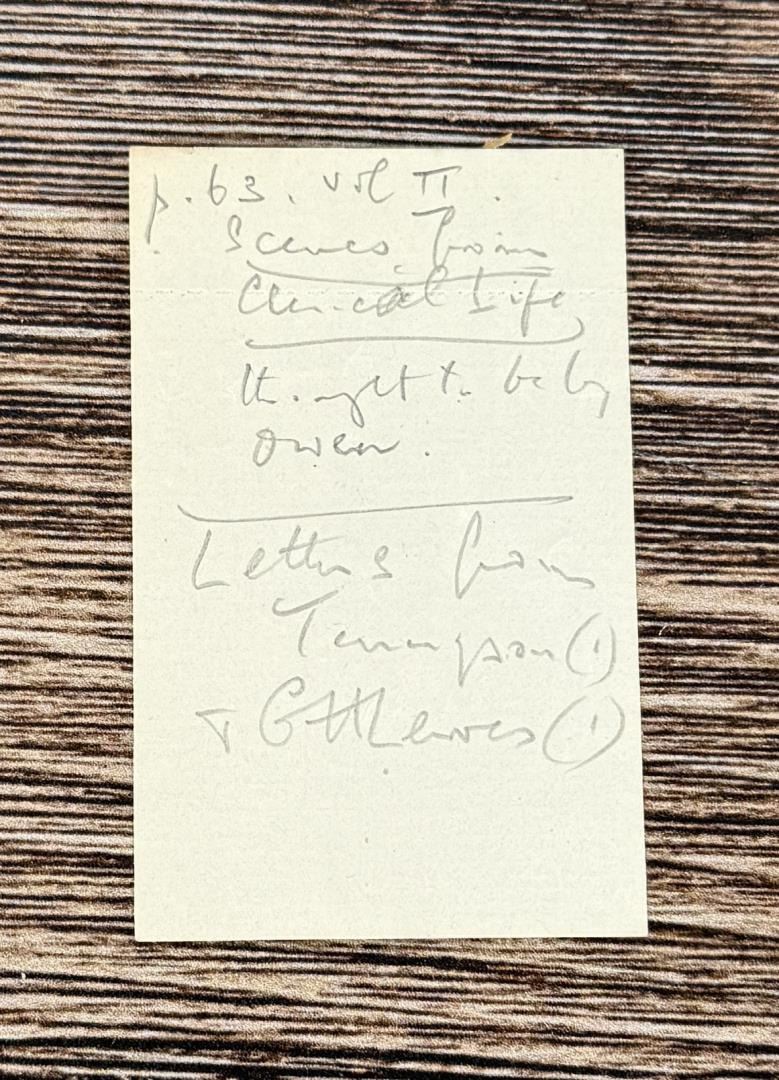 p. 63. vol II.
Scenes from
Clerical Life
thought to be by
Owen.
Letters from
Tennyson (1)
+ GHLewes (1)